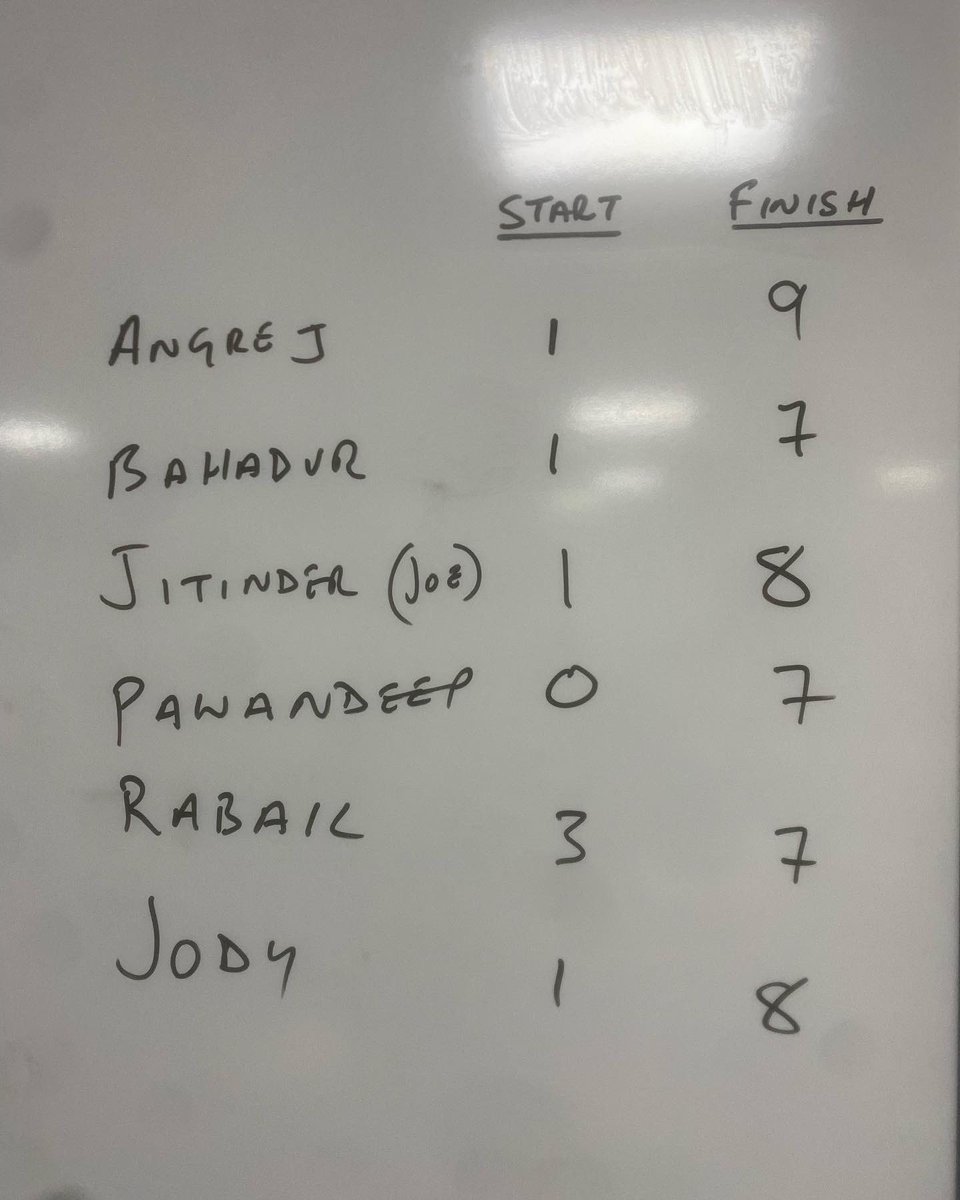 START FINISH
ANGREJ 1 9
BAHADUR 1 7
JITINDER (JOE) 1 8
PAWANDEEP 0 7
RABAIL 3 7
JODY 1 8